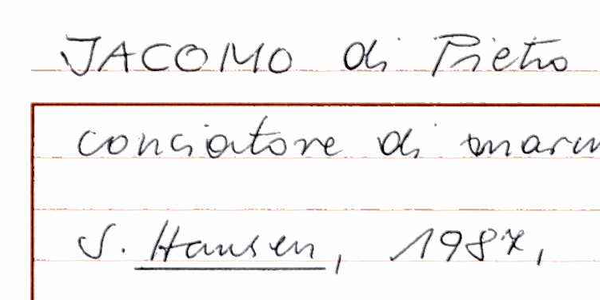 JACOMO di Pietro
conciatore di marm
S. Hansen, 1987,